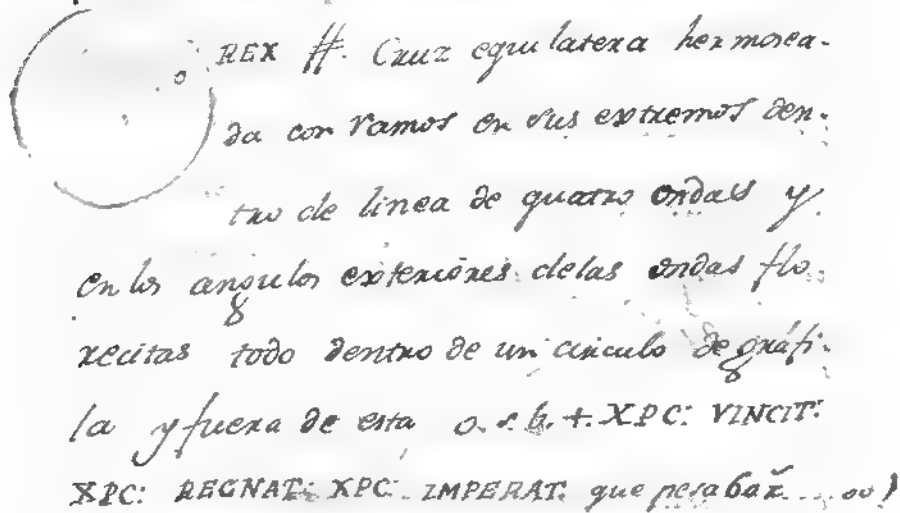 REX #. Cruz equilatera hermosea-
da con ramos en sus extremos den-
tro de linea de quatro ondas y
en los angulos exteriores de las ondas flo-
recitas todo dentro de un circulo de gráfi-
la y fuera de esta o. s. b. +. XPC: VINCIT:
XPC: REGNAT: XPC: IMPERAT: que pesaban